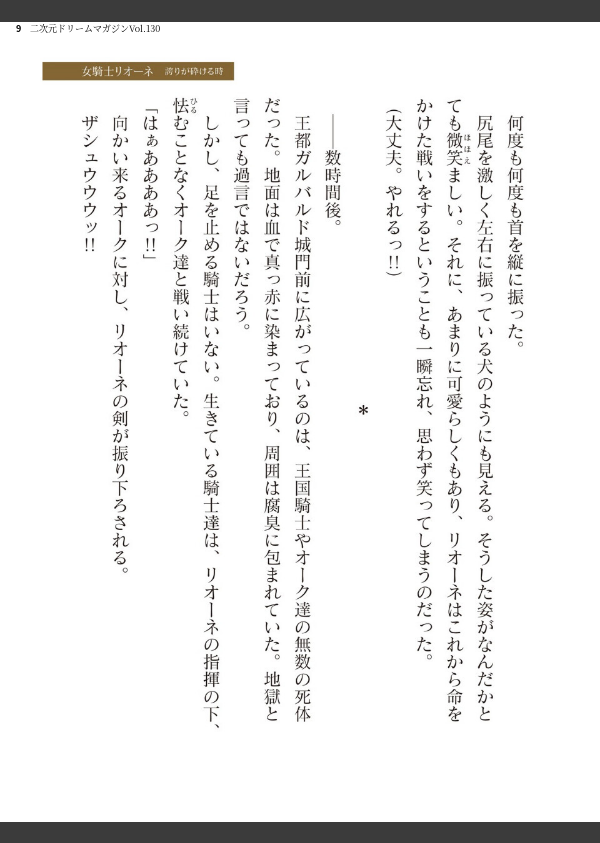 9 二次元ドリームマガジンVol.130
女騎士リオーネ 誇りが砕ける時
何度も何度も首を縦に振った。
尻尾を激しく左右に振っている犬のようにも見える。そうした姿がなんだかと
ても微笑ましい。それに、あまりに可愛らしくもあり、リオーネはこれから命を
ほほえ
かけた戦いをするということも一瞬忘れ、思わず笑ってしまうのだった。
(大丈夫。やれるっ!!)
*
――数時間後。
王都ガルバルド城門前に広がっているのは、王国騎士やオーク達の無数の死体
だった。地面は血で真っ赤に染まっており、周囲は腐臭に包まれていた。地獄と
言っても過言ではないだろう。
しかし、足を止める騎士はいない。生きている騎士達は、リオーネの指揮の下、
怯むことなくオーク達と戦い続けていた。
ひる
「はぁああああっ!!」
向かい来るオークに対し、リオーネの剣が振り下ろされる。
ザシュウウウッ!!